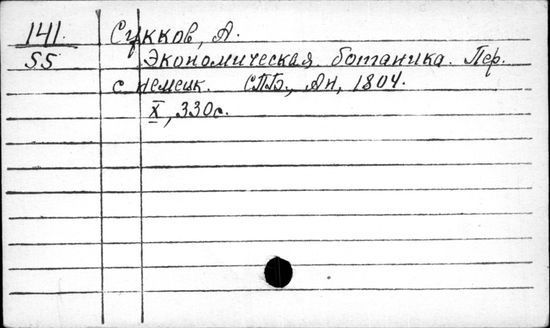 141. Сукков, А.
55 Экономическая ботаника. Пер.
с немецк. СПБ., Ан, 1804.
X, 330с.